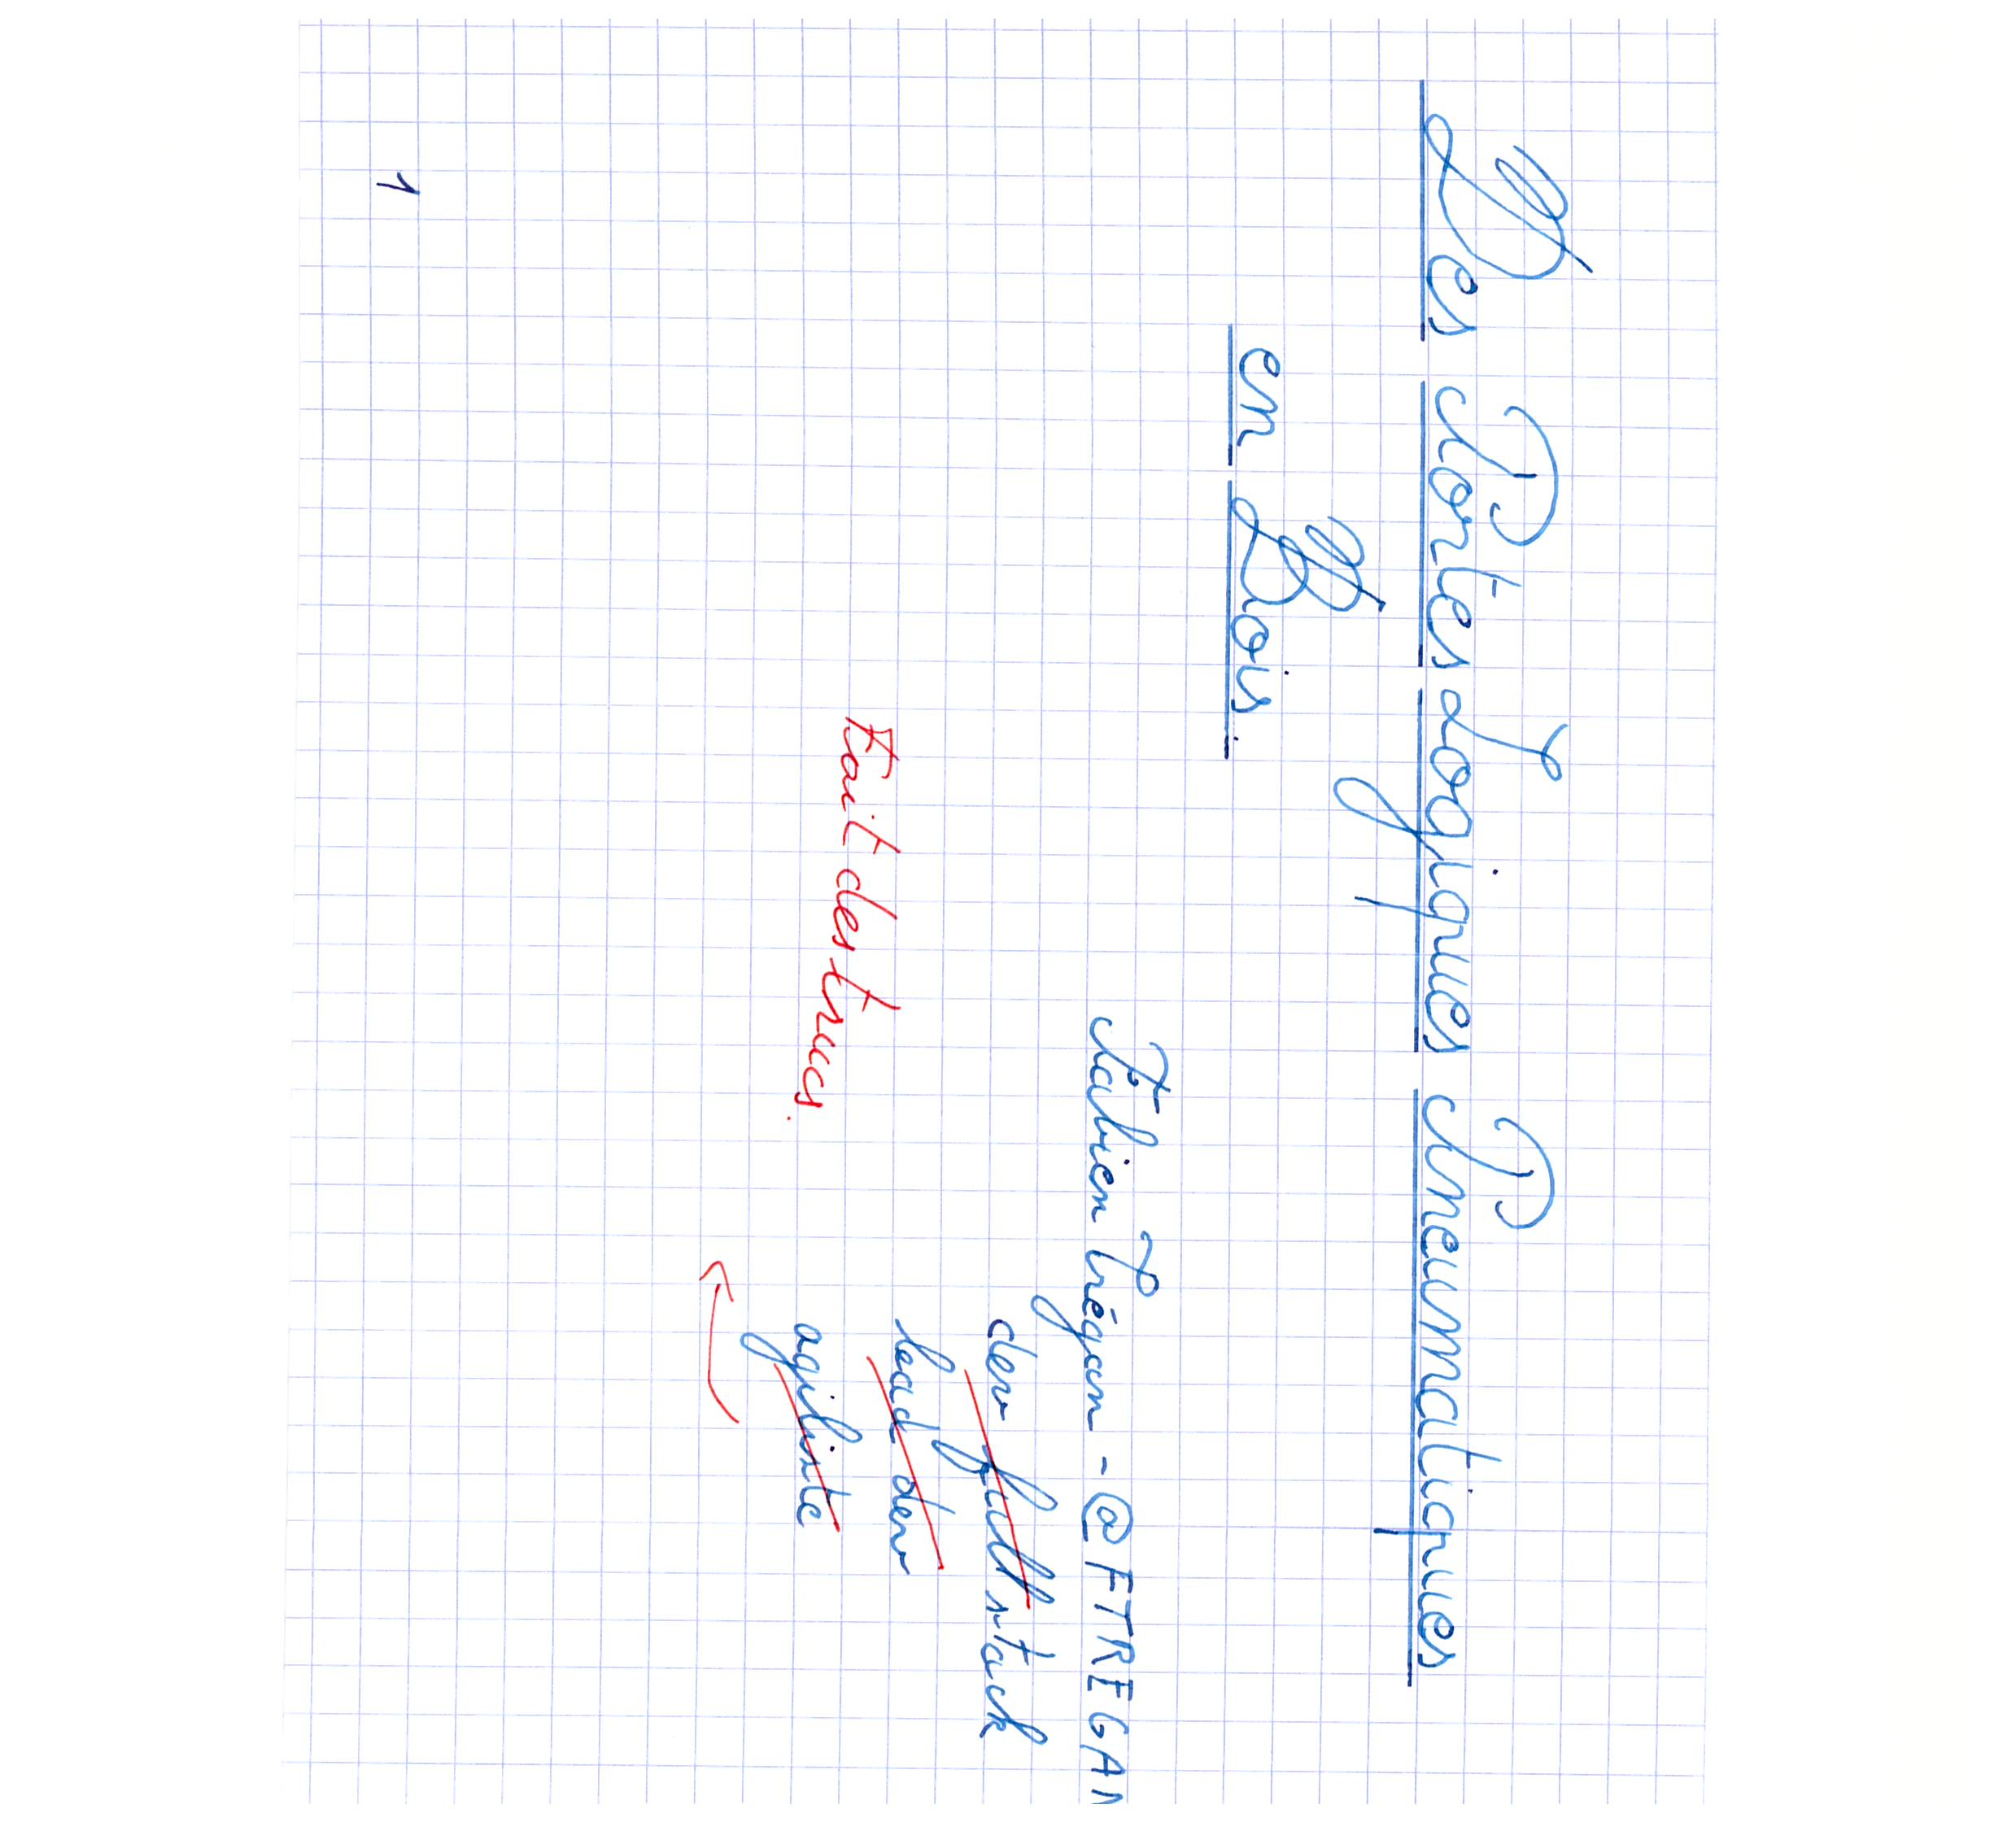 Les Portes Logiques Pneumatiques
en Bois.
Fabien Trégan - @FTREGAN
dev fullstack
lead dev
agiliste
Fait des trucs.
1